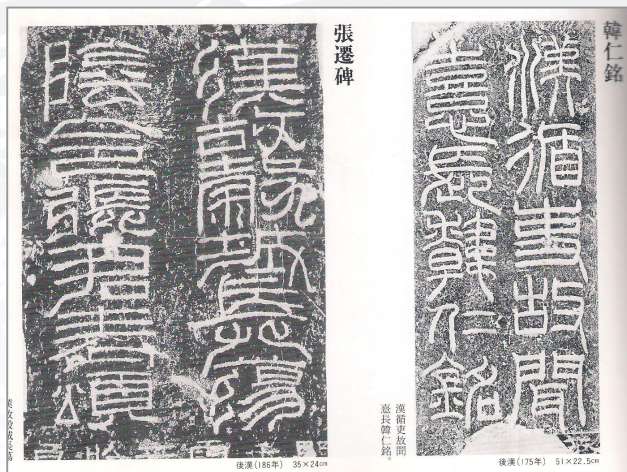 韓仁銘
漢循吏故聞
憙長韓仁銘
漢循吏故聞
憙長韓仁銘。
後漢(175年) 51×22.5cm
張遷碑
漢故穀城長蕩
陰令張君表頌
後漢(186年) 35×24cm
漢故穀城長蕩